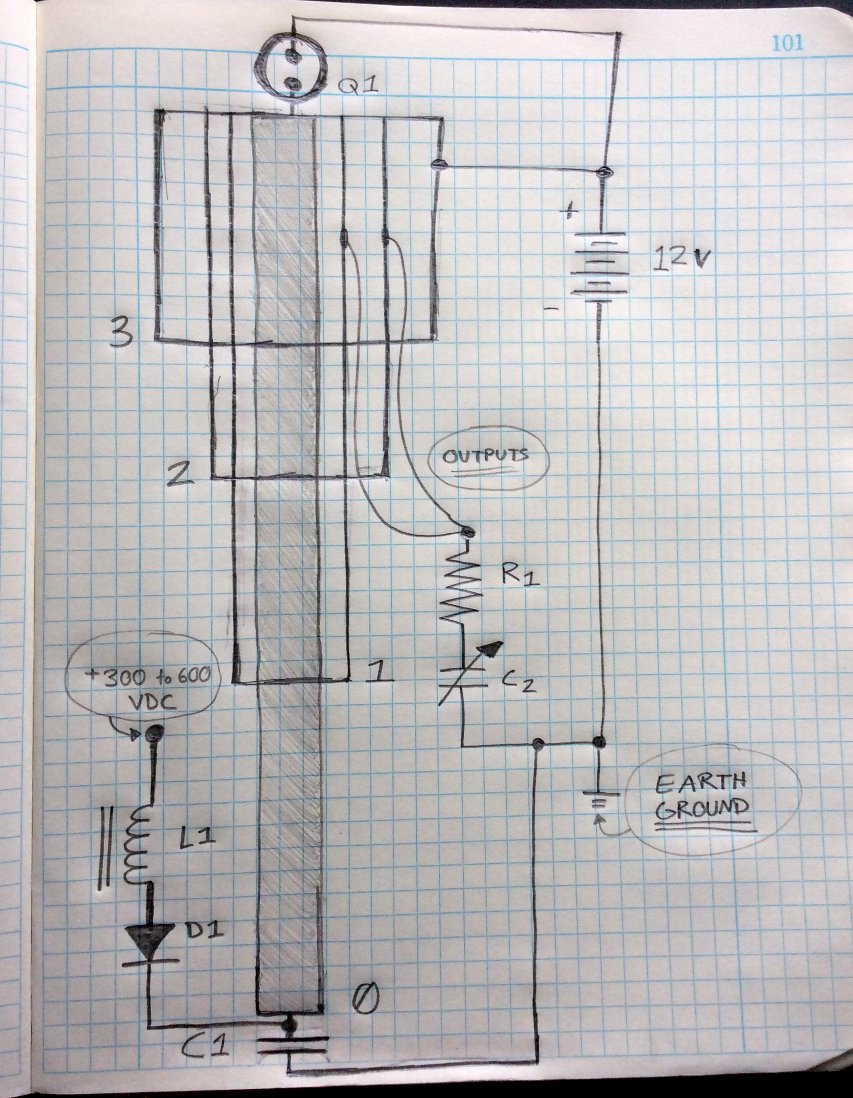 101
Q1
+
12V
-
3
OUTPUTS
2
R1
+300 to 600
VDC
1
C2
EARTH
GROUND
L1
D1
0
C1